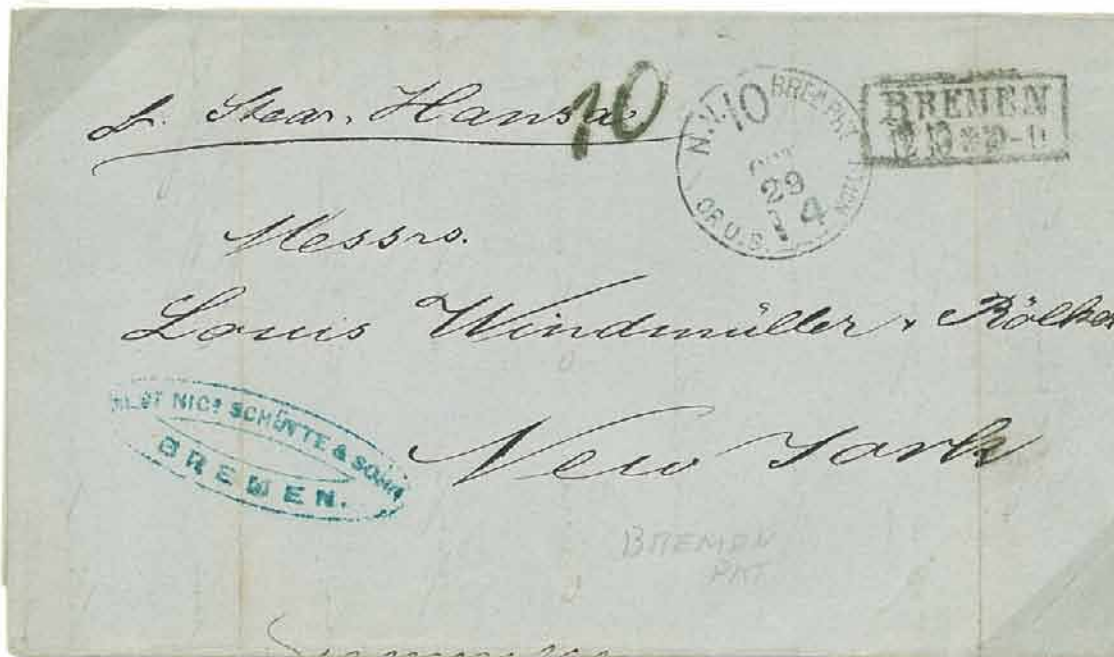 Stear. Hansa
10
N.Y. 10 BREM. PKT
29
4
OR U.S. NOTES
BREMEN
12 10
Messrs.
Louis Windmüller & Rölker
New York
SCHÜTTE & SOHN
BREMEN.
BREMEN
PKT